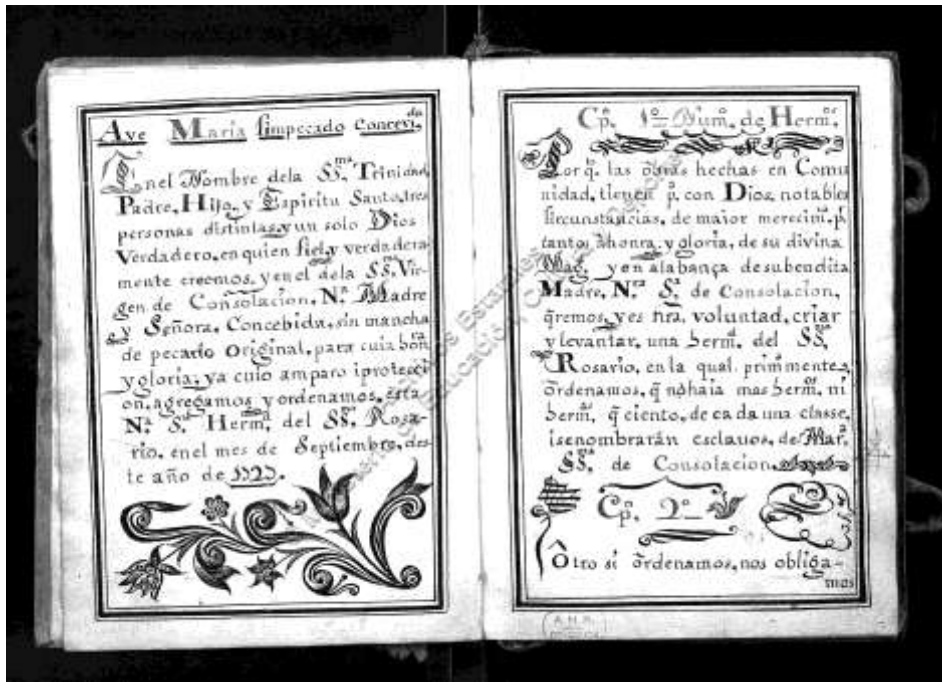 Ave Maria sinpecado Concevi.da
En el Nombre dela SS.ma Trinidad,
Padre, Hijo, y Espiritu Santo, tres
personas distintas, y un solo Dios
Verdadero, en quien fiel, y verdadera-
mente creemos, y en el dela SS.ma Vir-
gen de Consolacion, N.a Madre
y Señora, Concebida, sin mancha
de pecado Original, para cuia honra
y gloria; ya cuio amparo i protecci
on, agregamos y ordenamos, esta
N.a S.ta Herm.d del SS.mo Rosa-
rio, enel mes de Septiembre, des-
te año de
Cp. 1º Num.º de Herm.os
Por q.e las obras hechas en Comu
nidad, tienen p.a con Dios, notables
sircunstancias, de maior merecim.to p.r
tanto, âhonra, y gloria, de su divina
Mag.d y en alabança de subendita
Madre, N.ra S.ra de Consolacion,
q̃remos, y es nra, voluntad, criar
y levantar, una herm.d del SS.mo
Rosario, en la qual, prim.mente,
ordenamos, q̃ nohaia mas herm.os ni
herm.as q̃ ciento, de cada una classe,
isenombrarán esclavos, de Mar.a
SS.ma de Consolacion.
Cp. 2º
Otro si ordenamos, nos obliga-
mos
Estatales